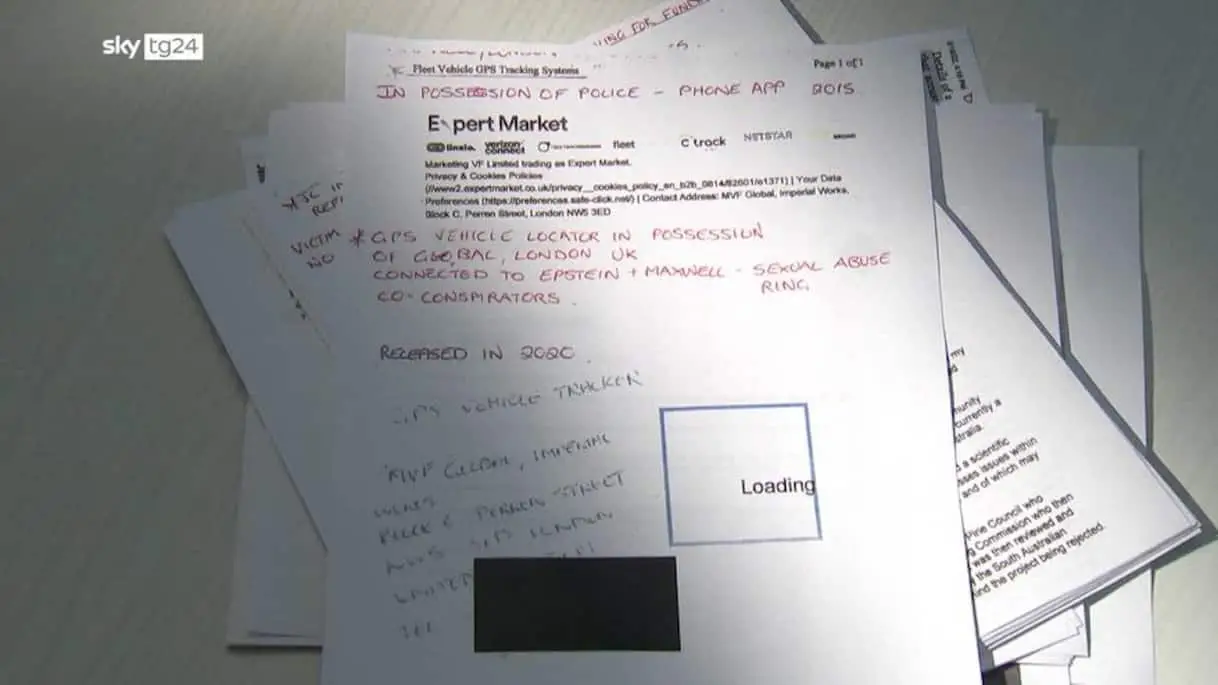 sky tg24
ING FOR FUNE
Fleet Vehicle GPS Tracking Systems
Page 1 of 1
IN POSSESSION OF POLICE - PHONE APP 2015
Details of a
Expert Market
verizon connect
fleet
Ctrack
NETSTAR
Marketing VF Limited trading as Expert Market.
Privacy & Cookies Policies
(//www2.expertmarket.co.uk/privacy__cookies_policy_en_b2b_0814/82601/e1371) | Your Data
Preferences (https://preferences.safe-click.net/) | Contact Address: MVF Global, Imperial Works,
Block C, Perren Street, London NW5 3ED
VICTIM
NO
* GPS VEHICLE LOCATOR IN POSSESSION
OF GLOBAL, LONDON UK
CONNECTED TO EPSTEIN + MAXWELL - SEXUAL ABUSE
RING
CO-CONSPIRATORS.
RELEASED IN 2020.
GPS VEHICLE TRACKER
MVF GLOBAL, IMPERIAL
WORKS
BLOCK C PERREN STREET
LONDON
TEL
Loading
my
munity
currently a
stralia.
d a scientific
sses issues within
and of which may
Pine Council who
g Commission who then
was then reviewed and
the South Australian
ind the project being rejected.